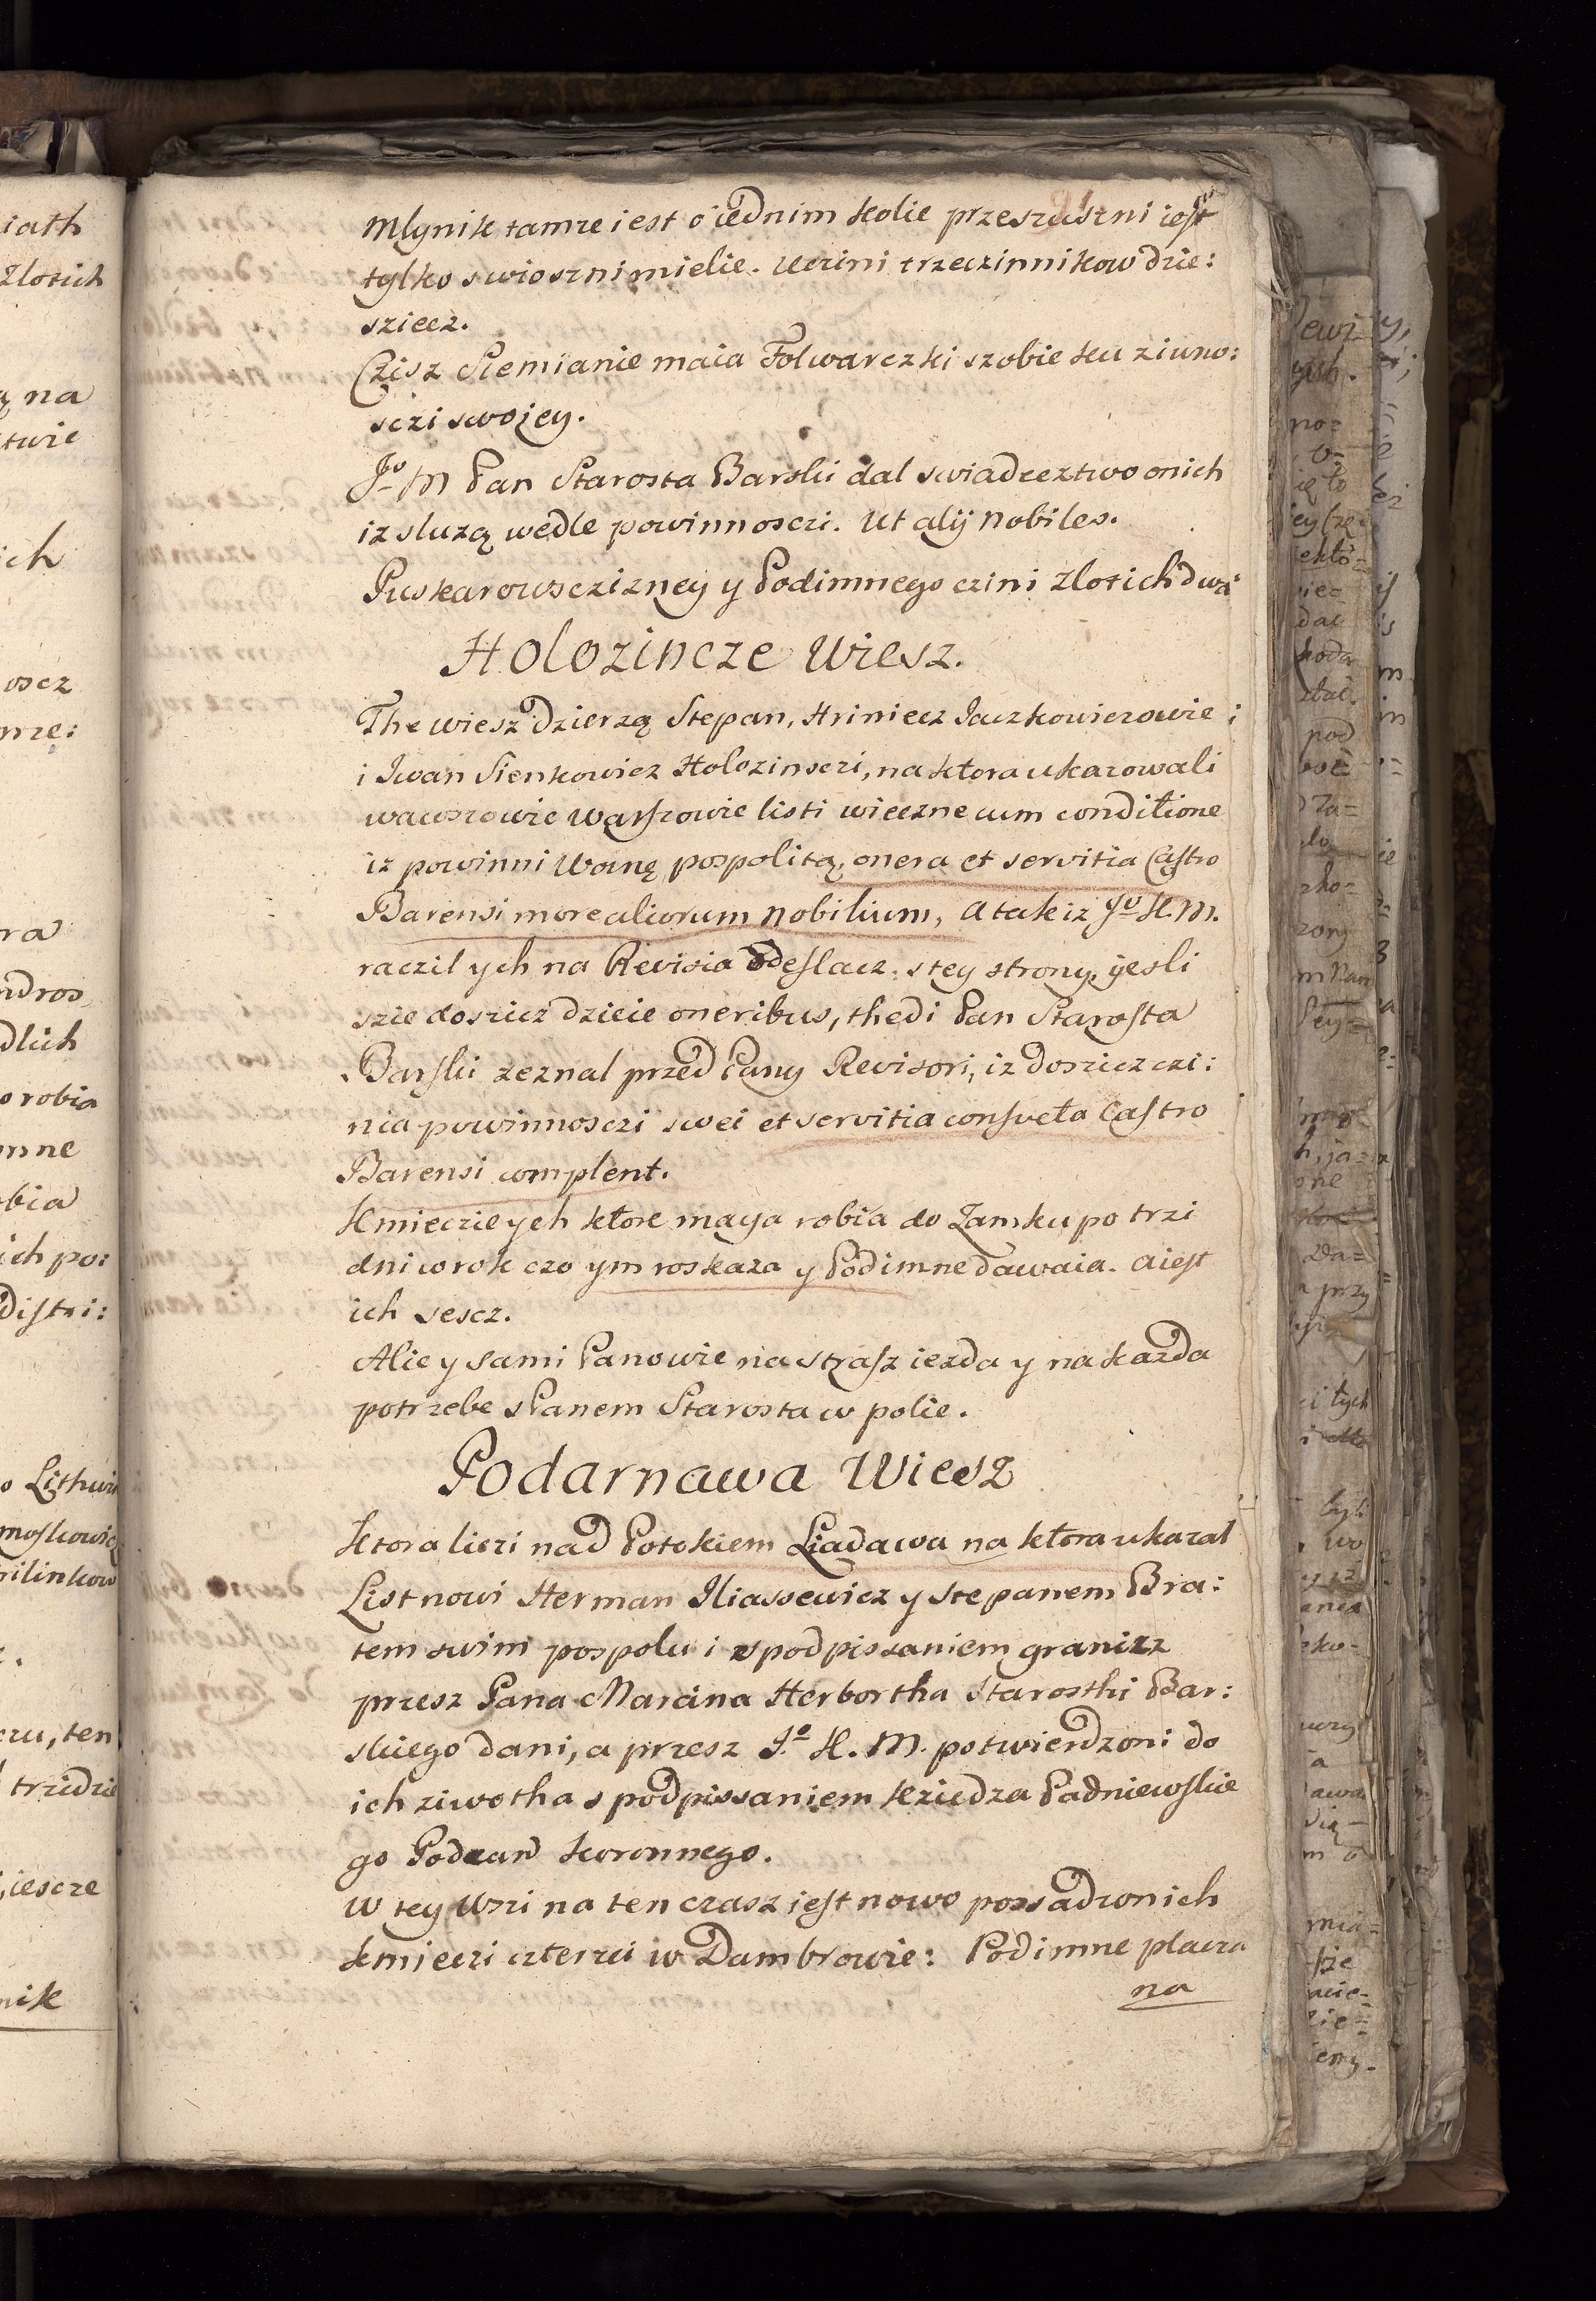 Mlynik tamze iest o iednim kolie przeszuszni iest
tylko swioszni mielie. Uczini trzeczinnikow dzie:
sziecz.
Czisz Siemianie maia Folwarczki szobie ku ziwno:
sczi swojey.
Jº M Pan Starosta Barski dal swiadecztwo onich
iz sluzą wedle powinnosczi. Ut alij nobiles.
Puskarowsczizney y Podimnego czini zlotich dwa
Holozincze Wiesz.
The wiesz dzierzą Stepan, Hriniecz Jaczkowiczowie i
i Iwan Sienkowicz Holozinsczi, na ktora ukazowali
Barensi more aliorum nobilium, A tak iz Jº K. M.
raczil ych na Revisia odeslacz. stey strony, yesli
szie doszicz dzieie oneribus, thedi Pan Starosta
Barski zeznal przed Pany Revisori, iz dosziczczi:
nia powinnosczi swei et servitia consveta Castro
Barensi complent.
Kmieczie ych ktore maya robia do Zamku po trzi
dni wrok czo ym roskaza y Podimne dawaia. aiest
ich sescz.
Alie y sami Panowie na strasz iezda y na kazda
potrzebe s Panem Starosta w polie.
Podarnawa Wiesz
Ktora liezi nad Potokiem Liadawa na ktora ukazal
List nowi Herman Iliassewicz y Stepanem Bra:
tem swim pospolu i spodpissaniem granizz
przesz Pana Marcina Herbortha Starosthi Bar:
skiego dani, a przesz Jº K. M. potwierdzoni do
ich ziwotha s podpissaniem Xziedza Padniewskie
go Podcan Koronnego.
W tey Wzi na ten czasz iest nowo possadzonich
kmieczi czterzi w Dambrowie: Podimne placza
na